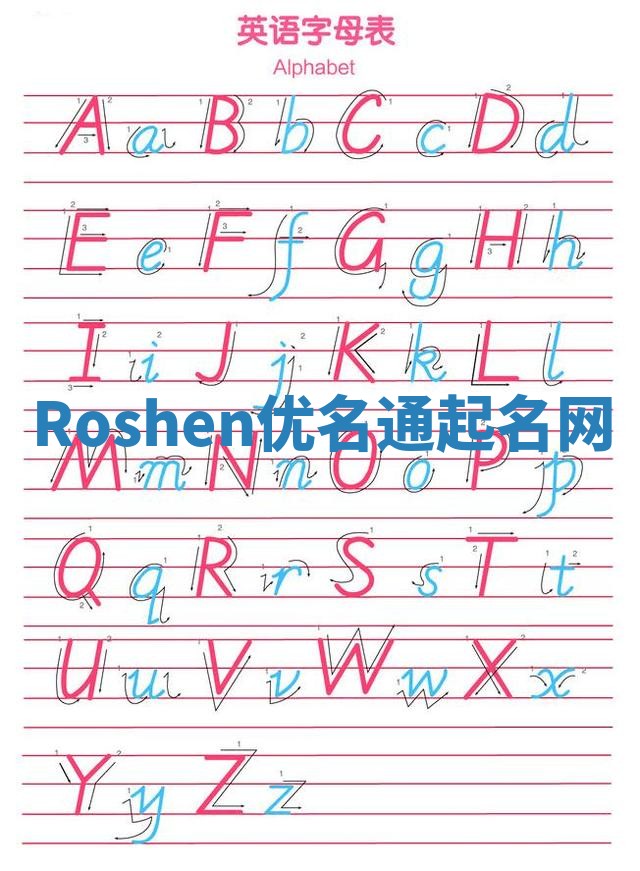 英语字母表
Alphabet
A a B b C c D d
E e F f G g H h
I i J j K k L l
Roshen优名通起名网
M m N n O o P p
Q q R r S s T t
U u V v W w X x
Y y Z z